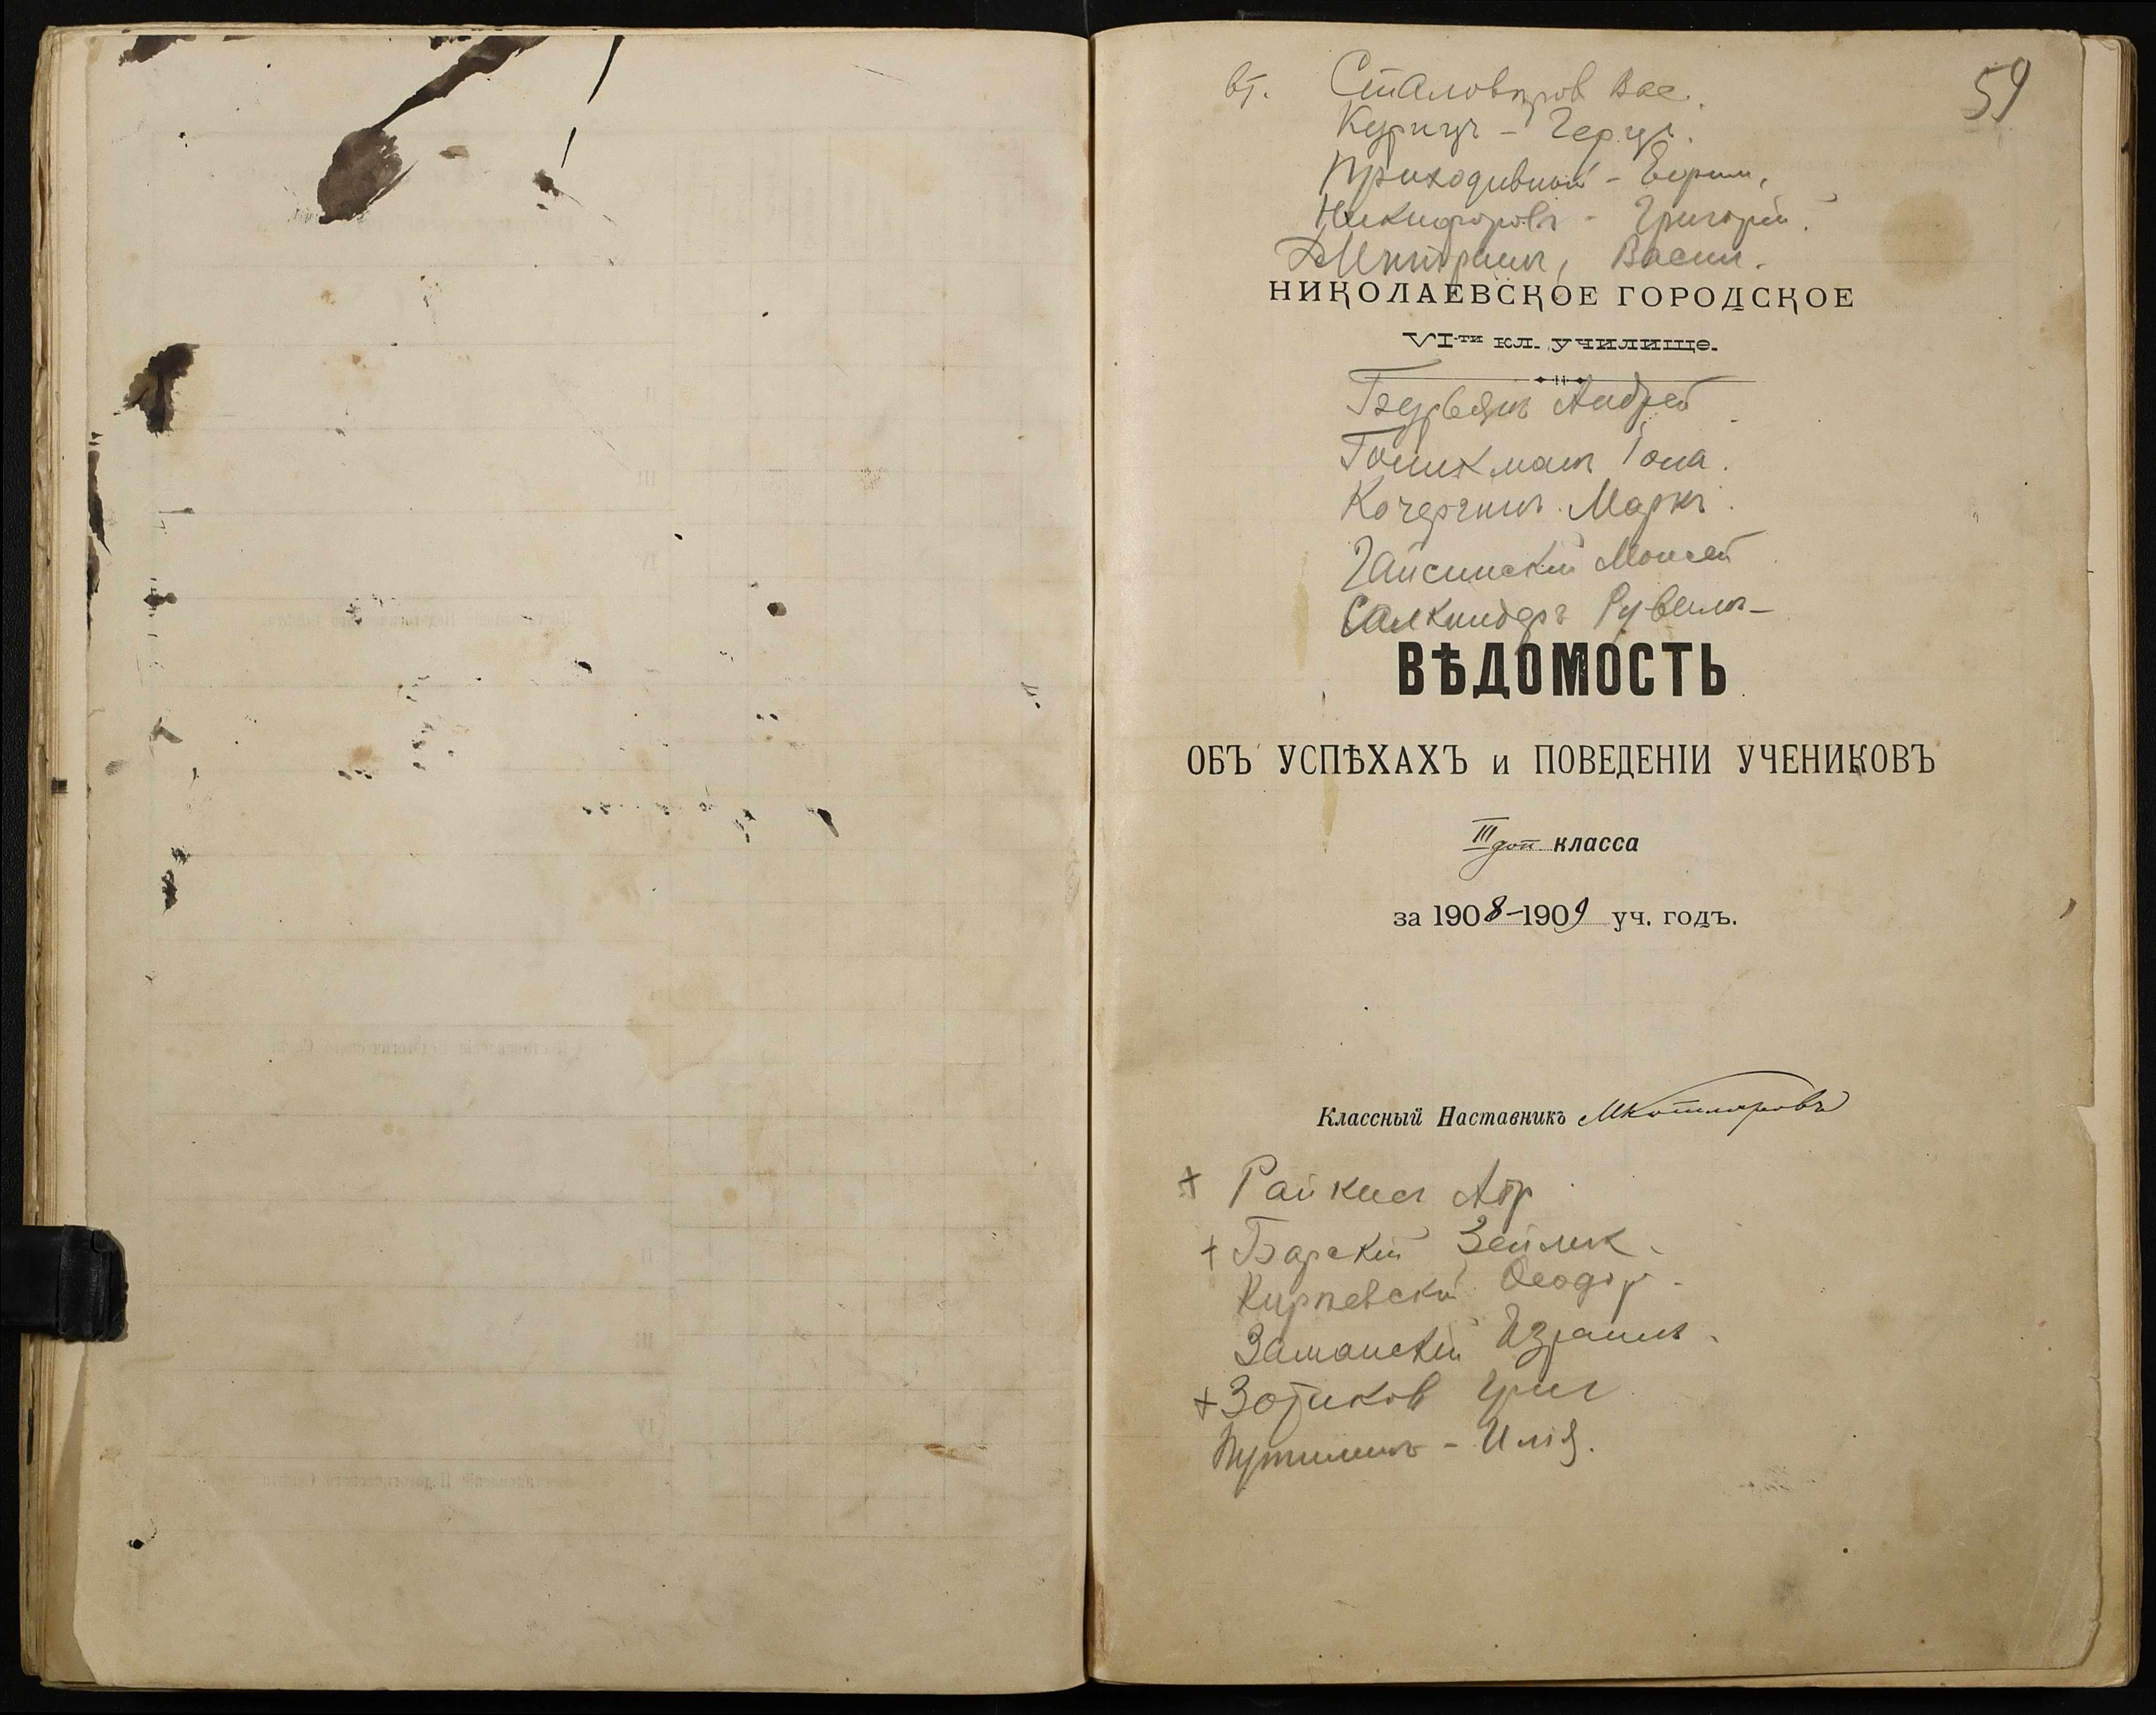 59
вт. Сталовъров Вас.
Курицъ - Герцъ.
Приходивный - Ефим,
Никифоровъ - Григорій.
Дмитрашъ, Васил.
НИКОЛАЕВСКОЕ ГОРОДСКОЕ
VI-ти кл. училище.
Андрей
Гоихманъ Іона.
Кочергинъ Маркъ.
Гайсинскій Моисей
Салкиндеръ Рувелъ
ВѢДОМОСТЬ
ОБЪ УСПѢХАХЪ и ПОВЕДЕНІИ УЧЕНИКОВЪ
III доп класса
за 1908-1909 уч. годъ.
Классный Наставникъ МКотляровъ
+ Райкис Абр
+ Барскій Зейлик.
Кирпевскій Ѳеодор.
Заманскій Израилъ.
+ Зотиков Григ
Путилинъ - Илія.